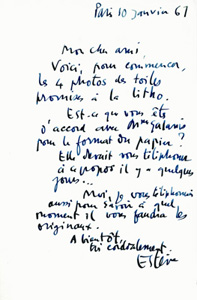 Paris 10 janvier 67
Mon cher ami,
Voici, pour commencer,
les 4 photos des toiles
promises à la litho.
Est-ce que vous êtes
d'accord avec
pour le format du papier ?
Elle devait vous téléphoner
à ce propos il y a quelques
jours...
Moi, je vous téléphonerai
aussi pour savoir à quel
moment il vous faudra les
originaux.
A bientôt,
très cordialement.
Estève